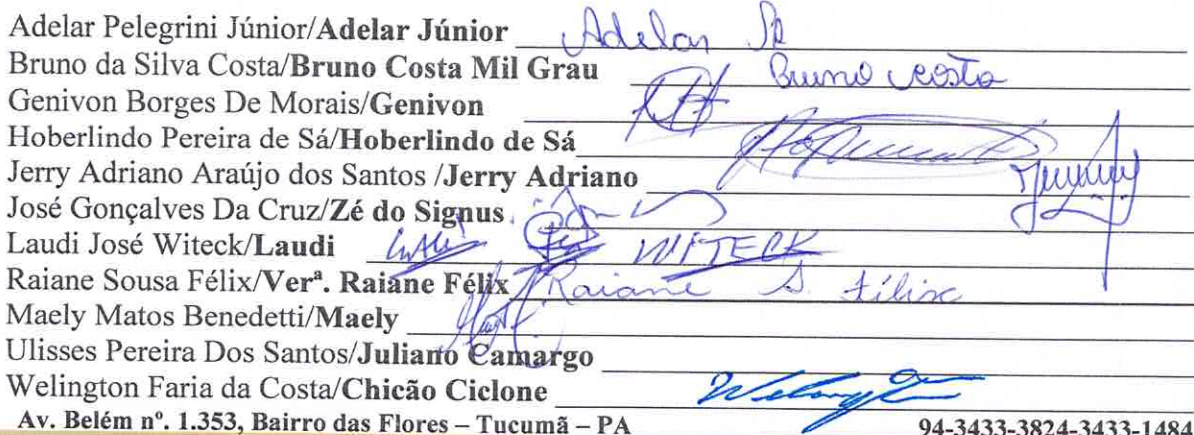 Adelar Pelegrini Júnior/Adelar Júnior Adelar Jr
Bruno da Silva Costa/Bruno Costa Mil Grau Bruno Costa
Genivon Borges De Morais/Genivon
Hoberlindo Pereira de Sá/Hoberlindo de Sá
Jerry Adriano Araújo dos Santos /Jerry Adriano
José Gonçalves Da Cruz/Zé do Signus
Laudi José Witeck/Laudi WITECK
Raiane Sousa Félix/Verª. Raiane Félix Raiane S. Félix
Maely Matos Benedetti/Maely
Ulisses Pereira Dos Santos/Juliano Camargo
Welington Faria da Costa/Chicão Ciclone
Av. Belém nº. 1.353, Bairro das Flores – Tucumã – PA 94-3433-3824-3433-1484